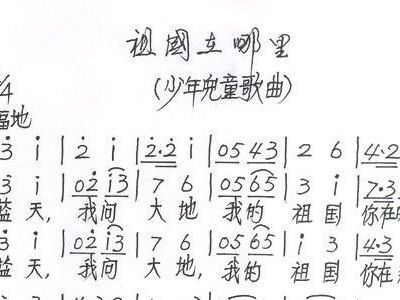 祖國在哪里
(少年兒童歌曲)
/4
福地
3 i | 2 i | 2·2 i | 05 43 | 2 6 | 4·2
3 i | 02 i3 | 7 6 | 05 65 | 3 i | 7·3
蓝天, 我问 大地 我的 祖国 你在
3 i | 02 i3 | 7 6 | 05 65 | i 3 | 4·3
蓝天, 我问 大地, 我的 祖国 你在